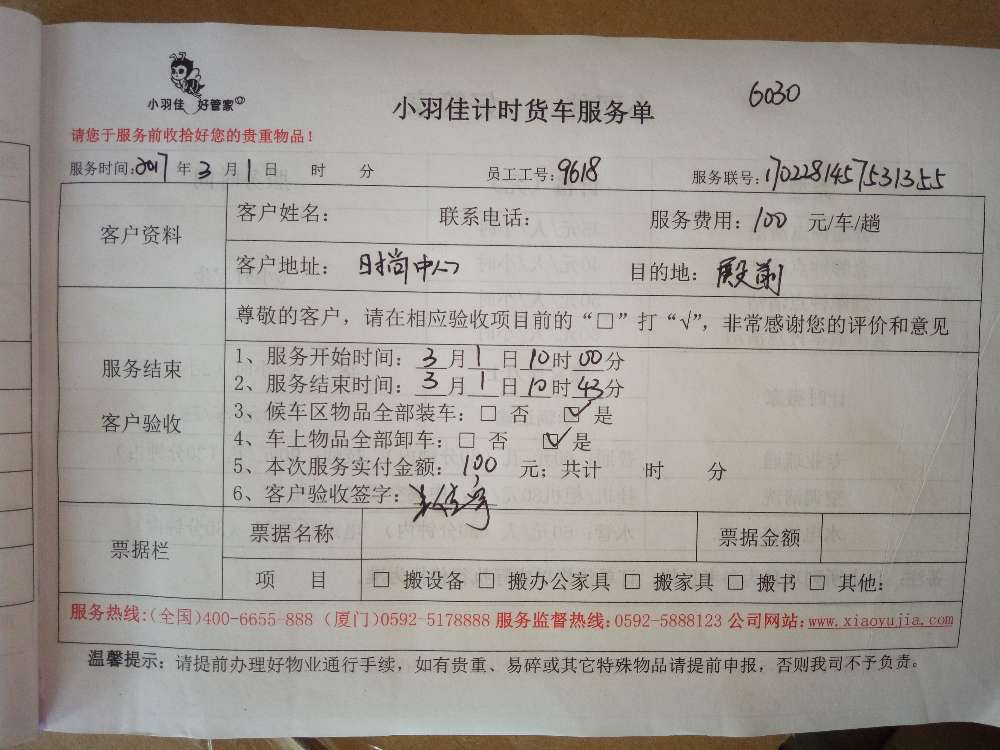 小羽佳 好管家©
小羽佳计时货车服务单
6030
请您于服务前收拾好您的贵重物品！
服务时间:2017年3月1日 时 分 员工工号:9618 服务联号:1702281457531355
客户资料
客户姓名： 联系电话： 服务费用：100 元/车/趟
客户地址： 时尚中心 目的地： 殿前
尊敬的客户，请在相应验收项目前的“□”打“√”，非常感谢您的评价和意见
服务结束
客户验收
1、服务开始时间：3月1日10时00分
2、服务结束时间：3月1日10时43分
3、候车区物品全部装车：□ 否 ☑ 是
4、车上物品全部卸车：□ 否 ☑ 是
5、本次服务实付金额：100 元；共计 时 分
6、客户验收签字：
票据栏
票据名称 票据金额
项 目 □ 搬设备 □ 搬办公家具 □ 搬家具 □ 搬书 □ 其他：
服务热线:(全国)400-6655-888 (厦门)0592-5178888 服务监督热线:0592-5888123 公司网站:www.xiaoyujia.com
温馨提示：请提前办理好物业通行手续，如有贵重、易碎或其它特殊物品请提前申报，否则我司不予负责。